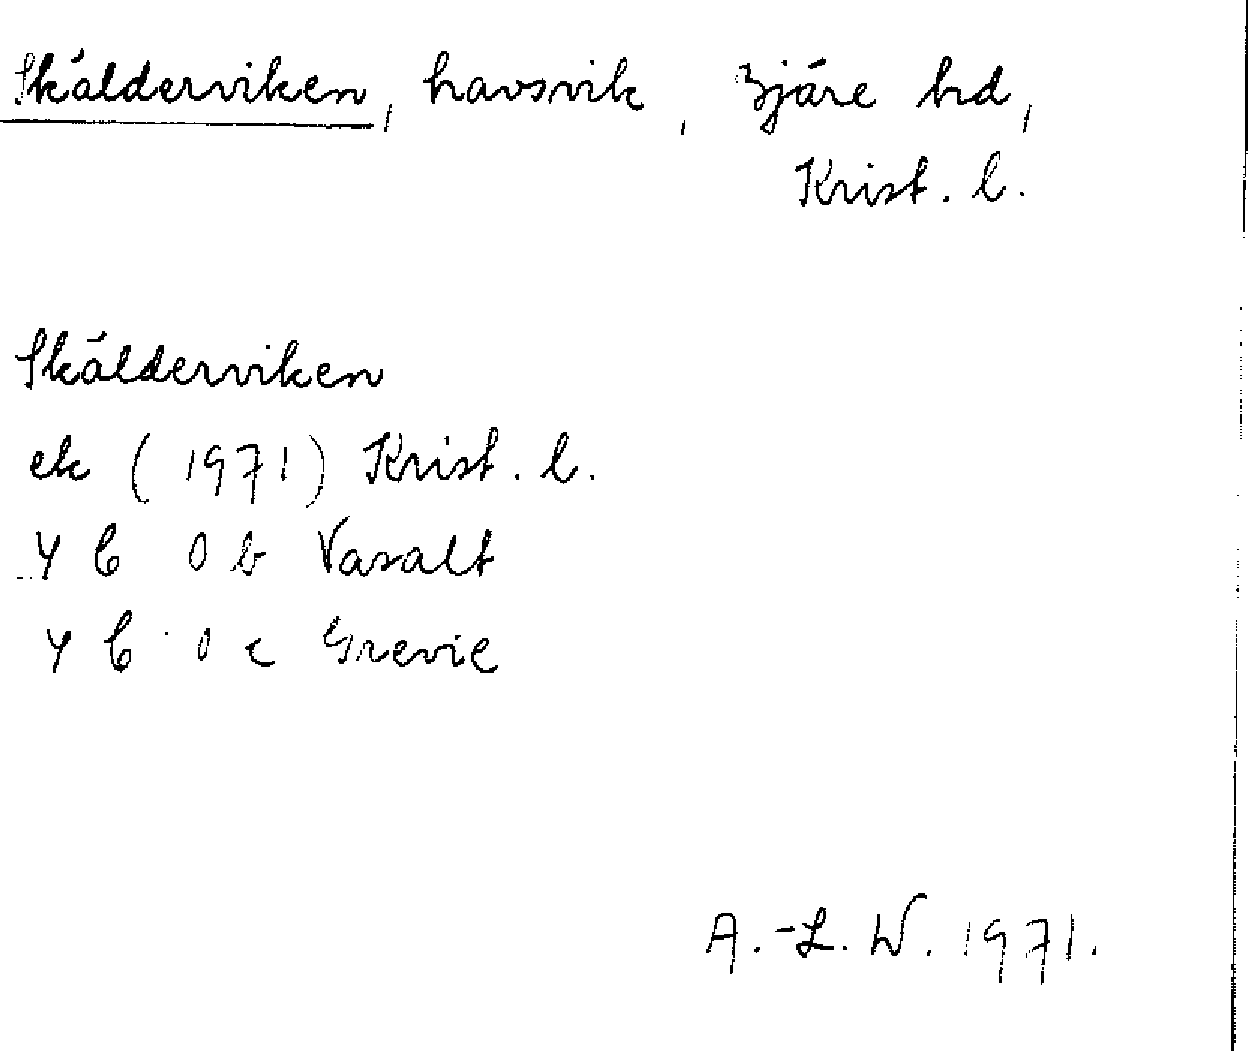 Skälderviken, havsvik, Bjäre hd,
Krist. l.
Skälderviken
ek (1971) Krist. l.
4 C 0 b Vasalt
4 C 0 c Grevie
A.-L. W. 1971.